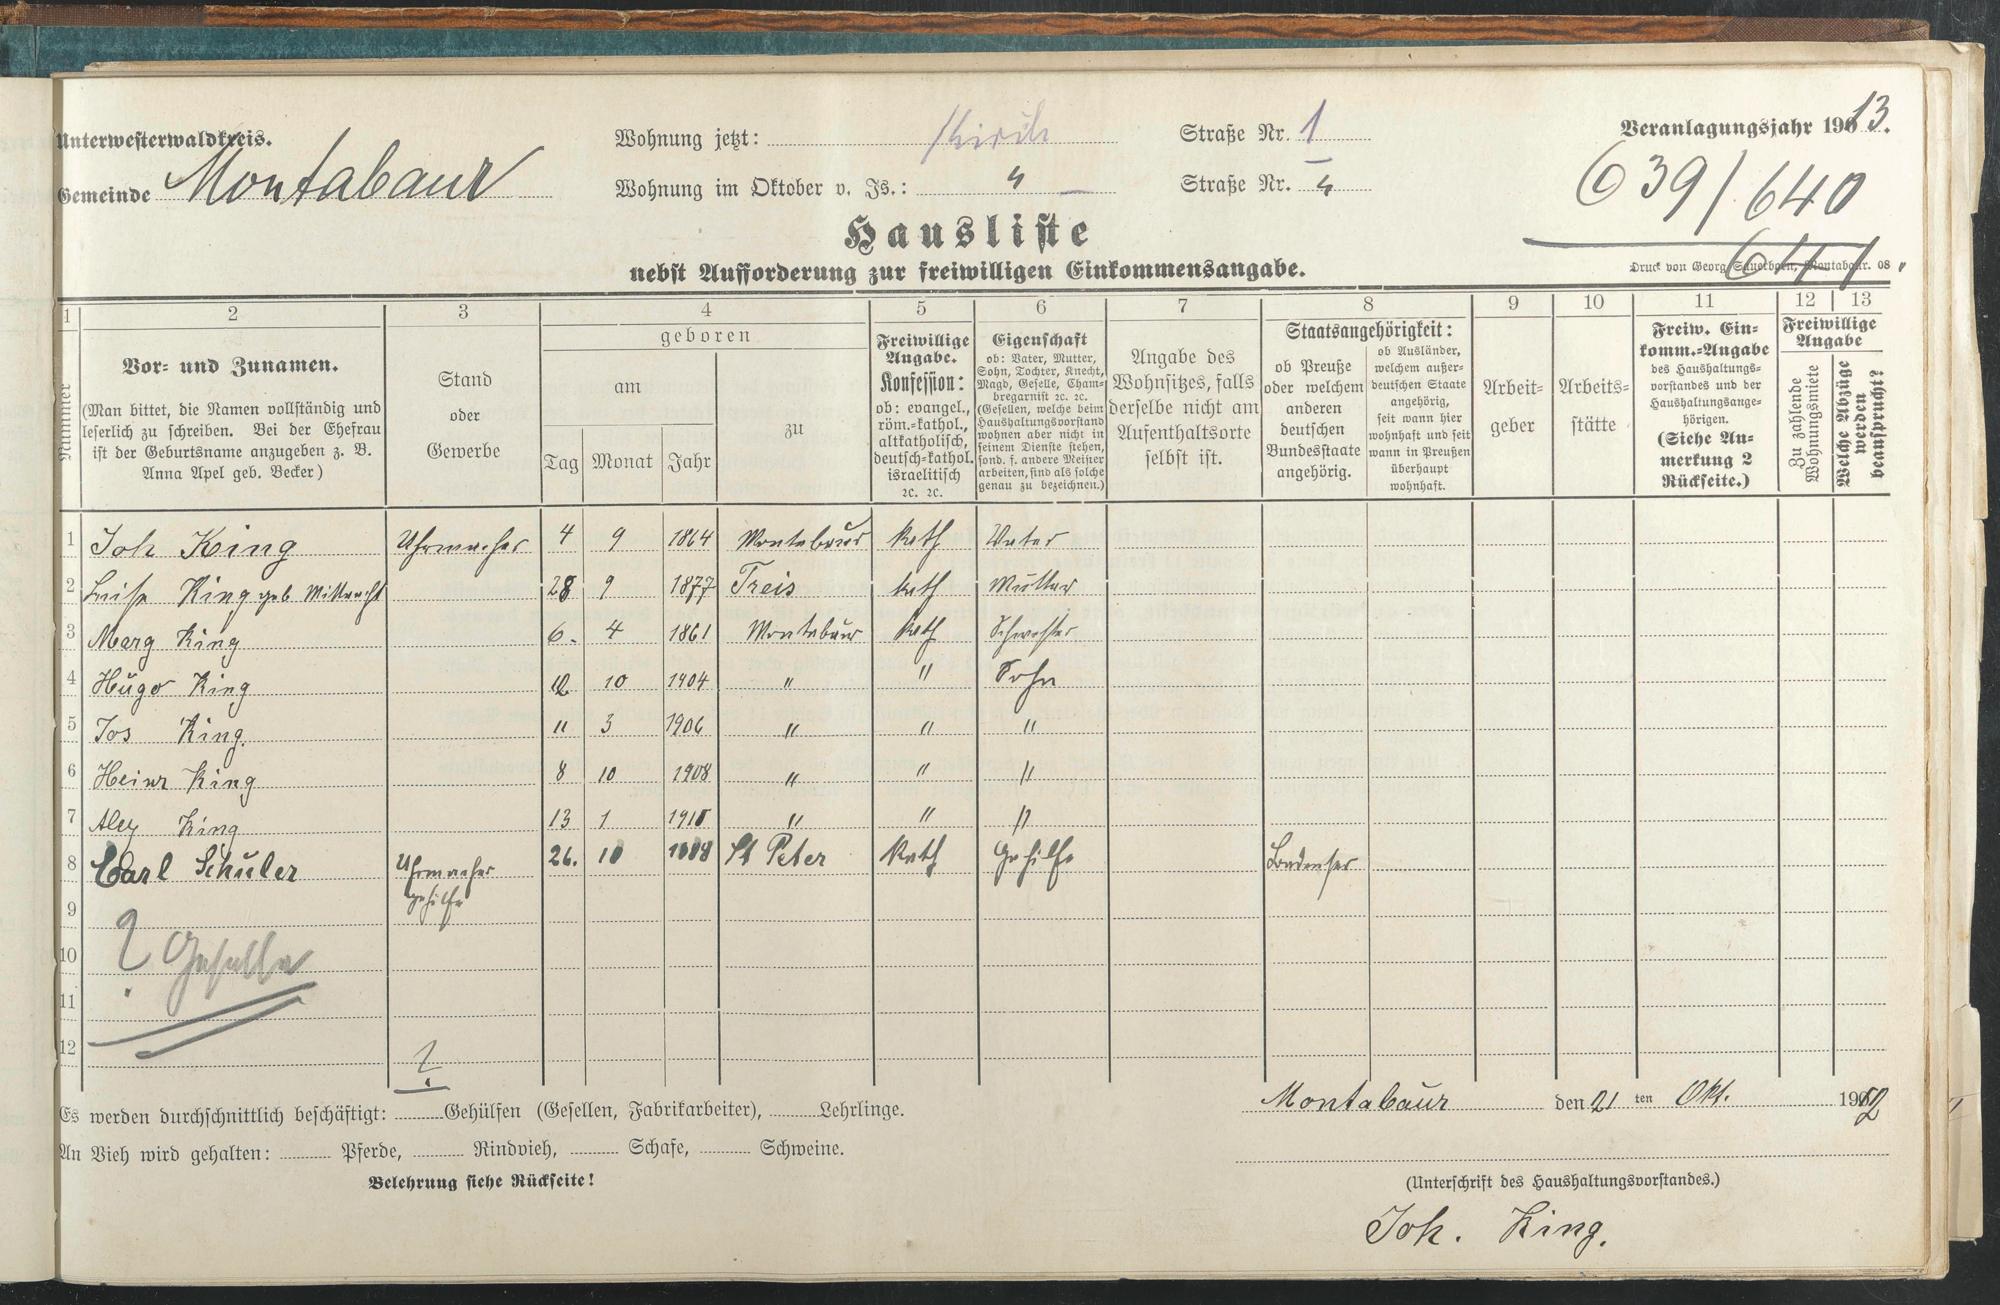 Unterwesterwaldkreis.
Gemeinde Montabaur
Wohnung jetzt: Kirch Straße Nr. 1
Wohnung im Oktober v. Js.: " Straße Nr. "
Veranlagungsjahr 1913.
639/640
641
Hausliste
nebst Aufforderung zur freiwilligen Einkommensangabe.
Druck von Georg Sauerborn, Montabaur. 08
1 2 3 4 5 6 7 8 9 10 11 12 13
Nummer
Vor- und Zunamen.
(Man bittet, die Namen vollständig und
leserlich zu schreiben. Bei der Ehefrau
ist der Geburtsname anzugeben z. B.
Anna Apel geb. Becker)
Stand
oder
Gewerbe
geboren
am
Tag Monat Jahr
zu
Freiwillige
Angabe.
Konfession:
ob: evangel.,
röm.-kathol.,
altkatholisch,
deutsch-kathol.
israelitisch
2c. 2c.
Eigenschaft
ob: Vater, Mutter,
Sohn, Tochter, Knecht,
Magd, Geselle, Cham-
bregarnist 2c. 2c.
(Gesellen, welche beim
Haushaltungsvorstand
wohnen aber nicht in
seinem Dienste stehen,
sond. f. andere Meister
arbeiten, sind als solche
genau zu bezeichnen.)
Angabe des
Wohnsitzes, falls
derselbe nicht am
Aufenthaltsorte
selbst ist.
Staatsangehörigkeit:
ob Preuße
oder welchem
anderen
deutschen
Bundesstaate
angehörig.
ob Ausländer,
welchem außer-
deutschen Staate
angehörig,
seit wann hier
wohnhaft und seit
wann in Preußen
überhaupt
wohnhaft.
Arbeit-
geber
Arbeits-
stätte
Freiw. Ein-
komm.-Angabe
des Haushaltungs-
vorstandes und der
Haushaltungsange-
hörigen.
(Siehe An-
merkung 2
Rückseite.)
Freiwillige
Angabe
Zu zahlende
Wohnungsmiete
Welche Abzüge
werden
beansprucht?
1 Joh King Uhrmacher 4 9 1864 Montabaur kath Vater
2 Luise King geb. Mittnacht 28 9 1877 Treis kath Mutter
3 Marg King 6. 4 1861 Montabaur kath Schwester
4 Hugo King 10 1904 " " Sohn
5 Jos King. 11 3 1906 " " "
6 Heinr King 8 10 1908 " " "
7 Alex King 13 1 " " "
8 Carl Schuler Uhrmacher 26. 10 St Peter Kath Gehilfe Badenser
gehilfe
9
10 ? Geselle
11
12
?
Es werden durchschnittlich beschäftigt: Gehülfen (Gesellen, Fabrikarbeiter), Lehrlinge.
An Vieh wird gehalten: Pferde, Rindvieh, Schafe, Schweine.
Belehrung siehe Rückseite!
Montabaur den 21 ten Okt. 1912
(Unterschrift des Haushaltungsvorstandes.)
Joh. King.